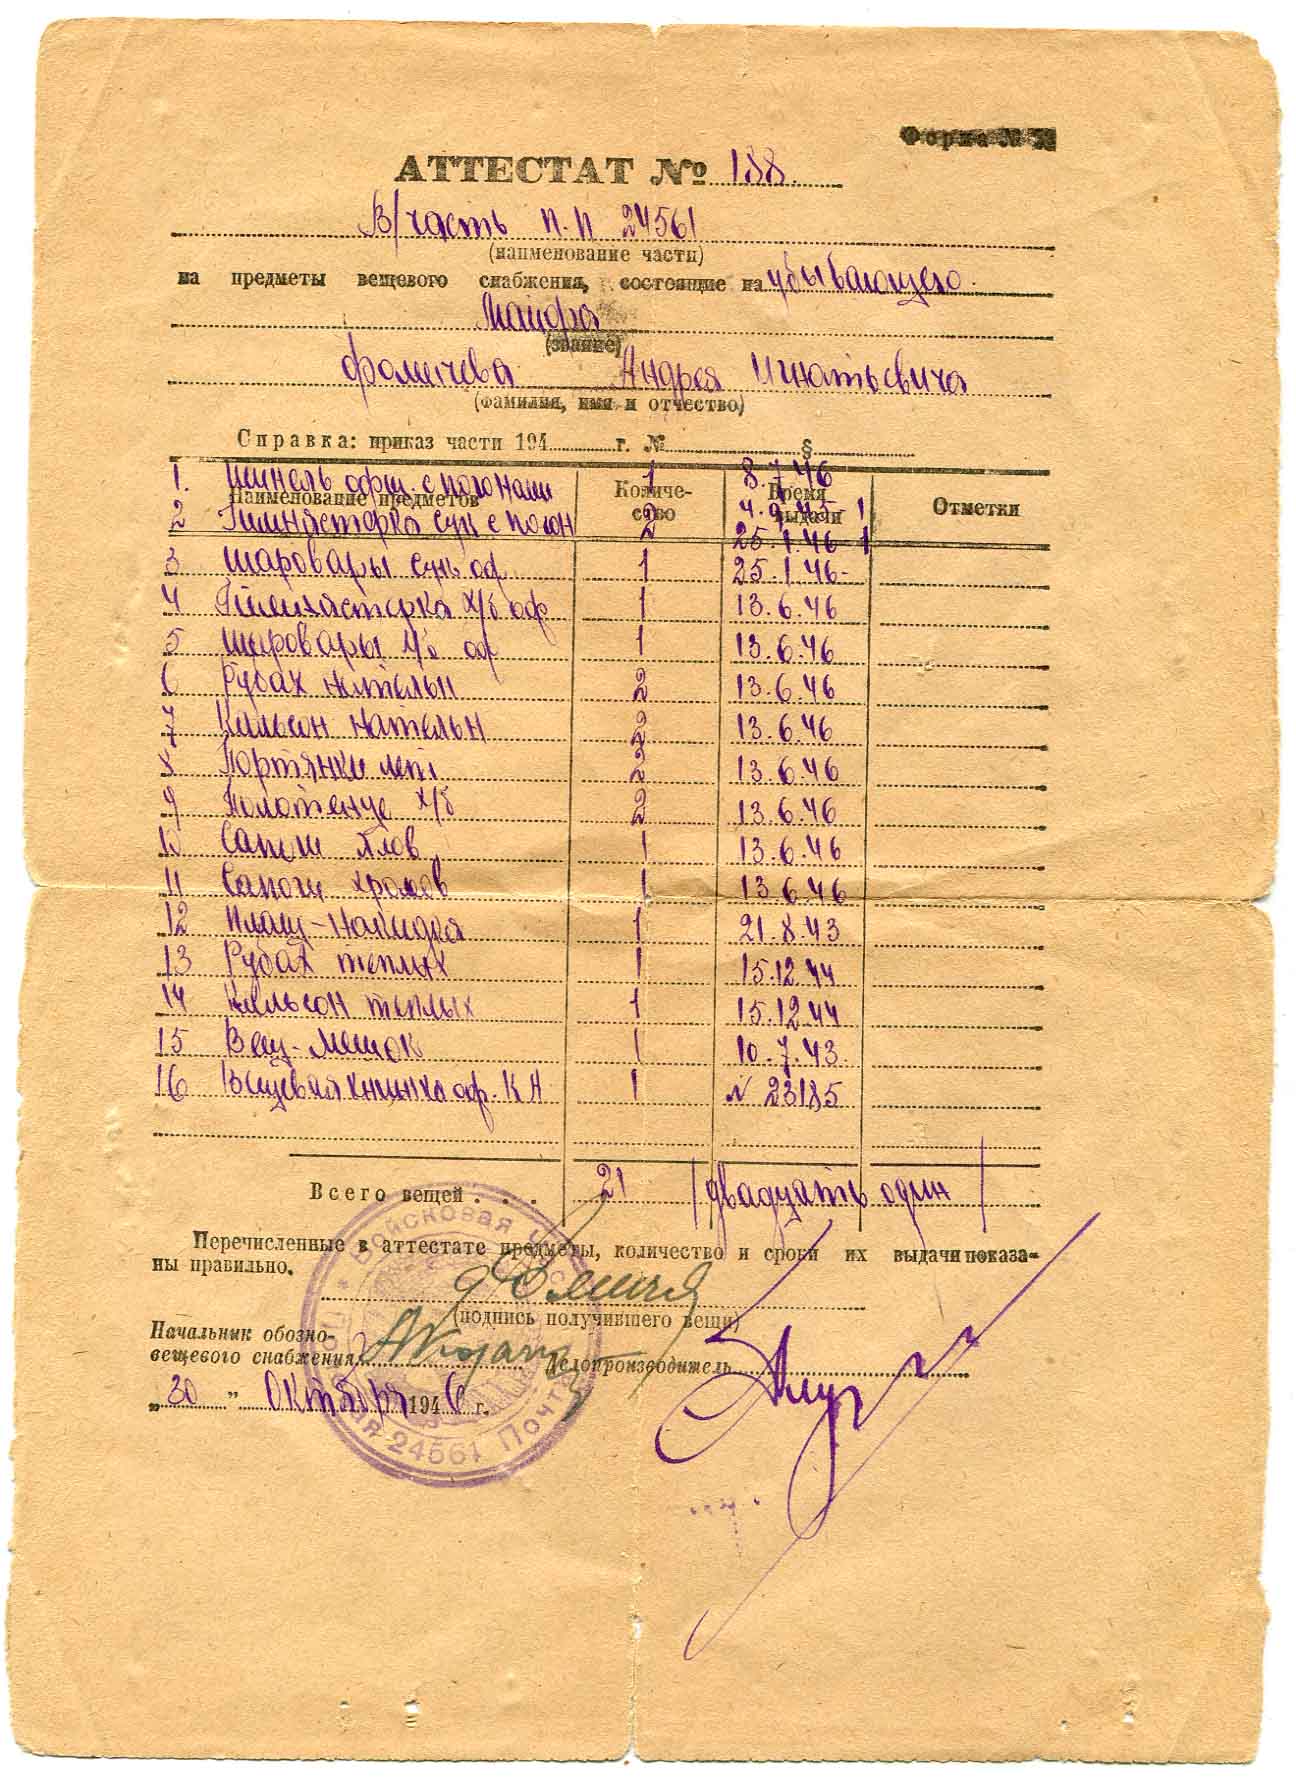 Форма №
АТТЕСТАТ № 188.
В/часть п.п 24561
(наименование части)
на предметы вещевого снабжения, состоящие на убывающего
Майора
(звание)
Фомичева Андрея Игнатьевича
(фамилия, имя и отчество)
Справка: приказ части 194 г. № §
Наименование предметов Количество Время выдачи Отметки
1. Шинель офиц. с погонами 1 8.7.46
2 Гимнастерка сук с погон 2 4.9.45-1
25.1.46-1
3 Шаровары сук оф 1 25.1.46-
4 Гимнастерка х/б оф 1 13.6.46
5 Шаровары х/б оф 1 13.6.46
6 Рубах нательн 2 13.6.46
7 Кальсон нательн 2 13.6.46
8 Портянки летн 2 13.6.46
9 Полотенце х/б 2 13.6.46
10 Сапоги ялов 1 13.6.46
11 Сапоги хромов 1 13.6.46
12 Плащ-накидка 1 21.8.43
13 Рубах теплых 1 15.12.44
14 Кальсон теплых 1 15.12.44
15 Вещ-мешок 1 10.7.43.
16 Вещевая книжка оф. КА 1 № 23185
Всего вещей . . . 21 /двадцать один/
Перечисленные в аттестате предметы, количество и сроки их выдачи показа-
ны правильно.
(подпись получившего вещи)
Начальник обозно-
вещевого снабжения Делопроизводитель
„30" Октября 1946 г.
Войсковая часть Полевая Почта 24561